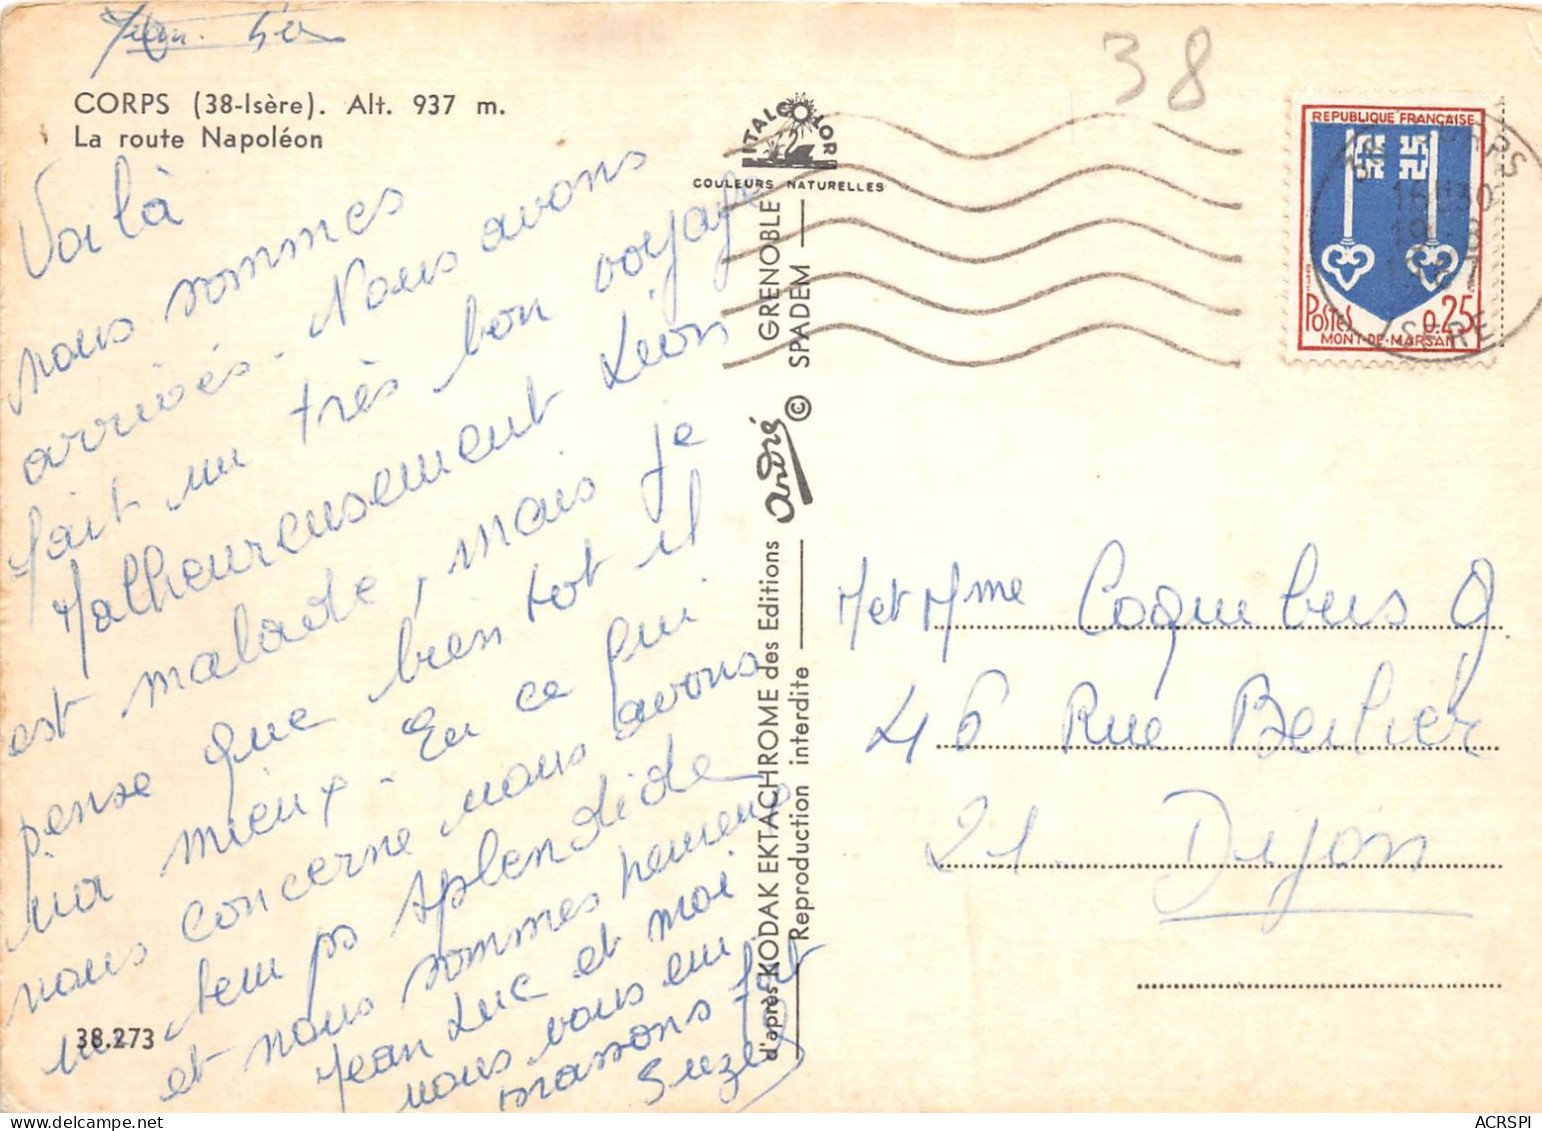 CORPS (38-Isère). Alt. 937 m.
La route Napoléon
Voilà
nous sommes
arrivés. Nous avons
fait un très bon voyage
Malheureusement Léon
est malade, mais je
pense que bien tot il
ira mieux - En ce qui
nous concerne nous avons
un temps splendide
et nous sommes heureux
Jean Luc et moi
nous vous em
brassons fort
38.273
ITALCOLOR
COULEURS NATURELLES
d'après KODAK EKTACHROME des Editions André © GRENOBLE
Reproduction interdite SPADEM
38
REPUBLIQUE FRANÇAISE
Postes 0.25
MONT-DE-MARSAN
38 CORPS
16H30
19 - 8
1967
ISERE
M et Mme
46 Rue
21. Dijon
ACRSPI